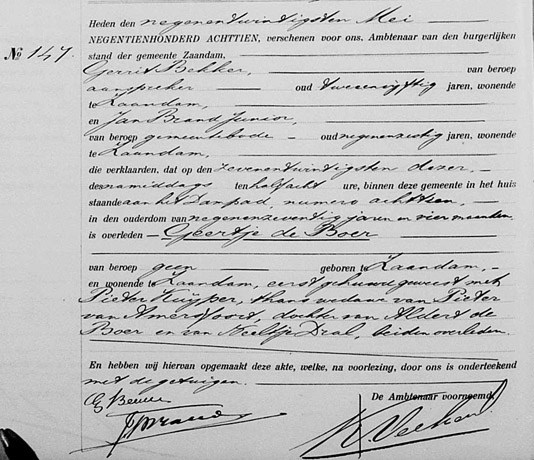 Heden den negenentwintigsten Mei
NEGENTIENHONDERD ACHTTIEN, verschenen voor ons, Ambtenaar van den burgerlijken
stand der gemeente Zaandam.
No 147.
Gerrit Bekker, van beroep
aanspreker oud tweeenvijftig jaren, wonende
te Zaandam,
en Jan Brand Junior,
van beroep gemeentebode oud negenenzestig jaren, wonende
te Zaandam,
die verklaarden, dat op den zevenentwintigsten dezer,
des namiddags ten half acht ure, binnen deze gemeente in het huis
staande aan het Dampad, numero achttien,
in den ouderdom van negenenzeventig jaren en vier maanden
is overleden Geertje de Boer
van beroep geen geboren te Zaandam,
en wonende te Zaandam, eerst gehuwd geweest met
Pieter Kuyper, thans weduwe van Pieter
van Amersfoort, dochter van Aldert de
Boer en van Neeltje Dral, beiden overleden.
En hebben wij hiervan opgemaakt deze akte, welke, na voorlezing, door ons is onderteekend
met de getuigen.
De Ambtenaar voornoemd,
G Bekker
J Brand Jr